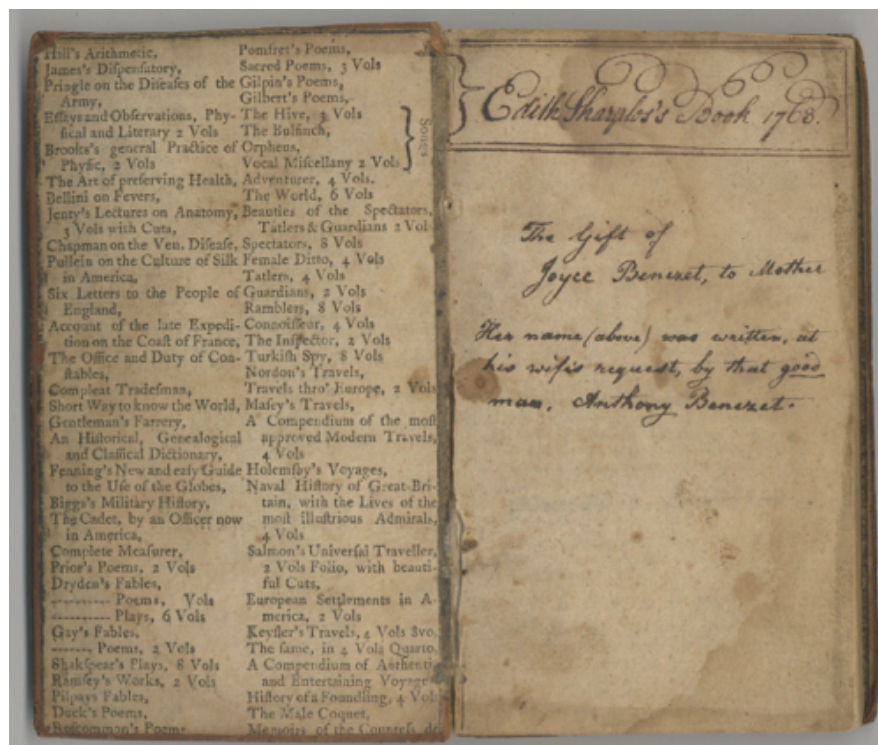 Hill's Arithmetic,
James's Dispensatory,
Pringle on the Diseases of the
Army,
Essays and Observations, Phy-
sical and Literary 2 Vols
Brooks's general Practice of
Physic, 2 Vols
The Art of preserving Health,
Bellini on Fevers,
Jenty's Lectures on Anatomy,
3 Vols with Cuts,
Chapman on the Ven. Disease,
Pullein on the Culture of Silk
in America,
Six Letters to the People of
England,
Account of the late Expedi-
tion on the Coast of France,
The Office and Duty of Con-
stables,
Compleat Tradesman,
Short Way to know the World,
Gentleman's Farrery,
An Historical, Genealogical
and Classical Dictionary,
Fenning's New and easy Guide
to the Use of the Globes,
Biggs's Military History,
The Cadet, by an Officer now
in America,
Complete Measurer,
Prior's Poems, 2 Vols
Dryden's Fables,
---------- Poems, Vols
---------- Plays, 6 Vols
Gay's Fables,
-------, Poems, 2 Vols
Shakspear's Plays, 8 Vols
Ramsey's Works, 2 Vols
Pilpays Fables,
Duck's Poems,
Roscommon's Poems
Pomfret's Poems,
Sacred Poems, 3 Vols
Gilpin's Poems,
Gilbert's Poems,
The Hive, 3 Vols
The Bulfinch,
Orpheus,
Vocal Miscellany 2 Vols
Songs
Adventurer, 4 Vols.
The World, 6 Vols
Beauties of the Spectators,
Tatlers & Guardians 2 Vol
Spectators, 8 Vols
Female Ditto, 4 Vols
Tatlers, 4 Vols
Guardians, 2 Vols
Ramblers, 8 Vols
Connoisseur, 4 Vols
The Inspector, 2 Vols
Turkish Spy, 8 Vols
Nordon's Travels,
Travels thro' Europe, 2 Vols
Masey's Travels,
A Compendium of the most
approved Modern Travels,
4 Vols
Holemsby's Voyages,
Naval History of Great-Bri-
tain, with the Lives of the
most illustrious Admirals,
4 Vols
Salmon's Universal Traveller,
2 Vols Folio, with beauti-
ful Cuts,
European Settlements in A-
merica, 2 Vols
Keysler's Travels, 4 Vols 8vo.
The same, in 4 Vols Quarto.
A Compendium of Authentic
and Entertaining Voyages
History of a Foundling, 4 Vols
The Male Coquet,
Memoirs of the Countess de
Edith Sharples's Book 1768.
The Gift of
Joyce Benezet, to Mother
Her name (above) was written, at
his wife's request, by that good
man, Anthony Benezet.